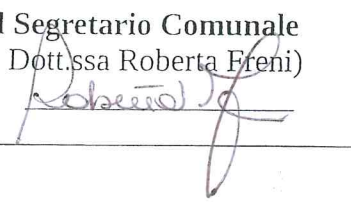 l Segretario Comunale
Dott.ssa Roberta Freni)
Roberta